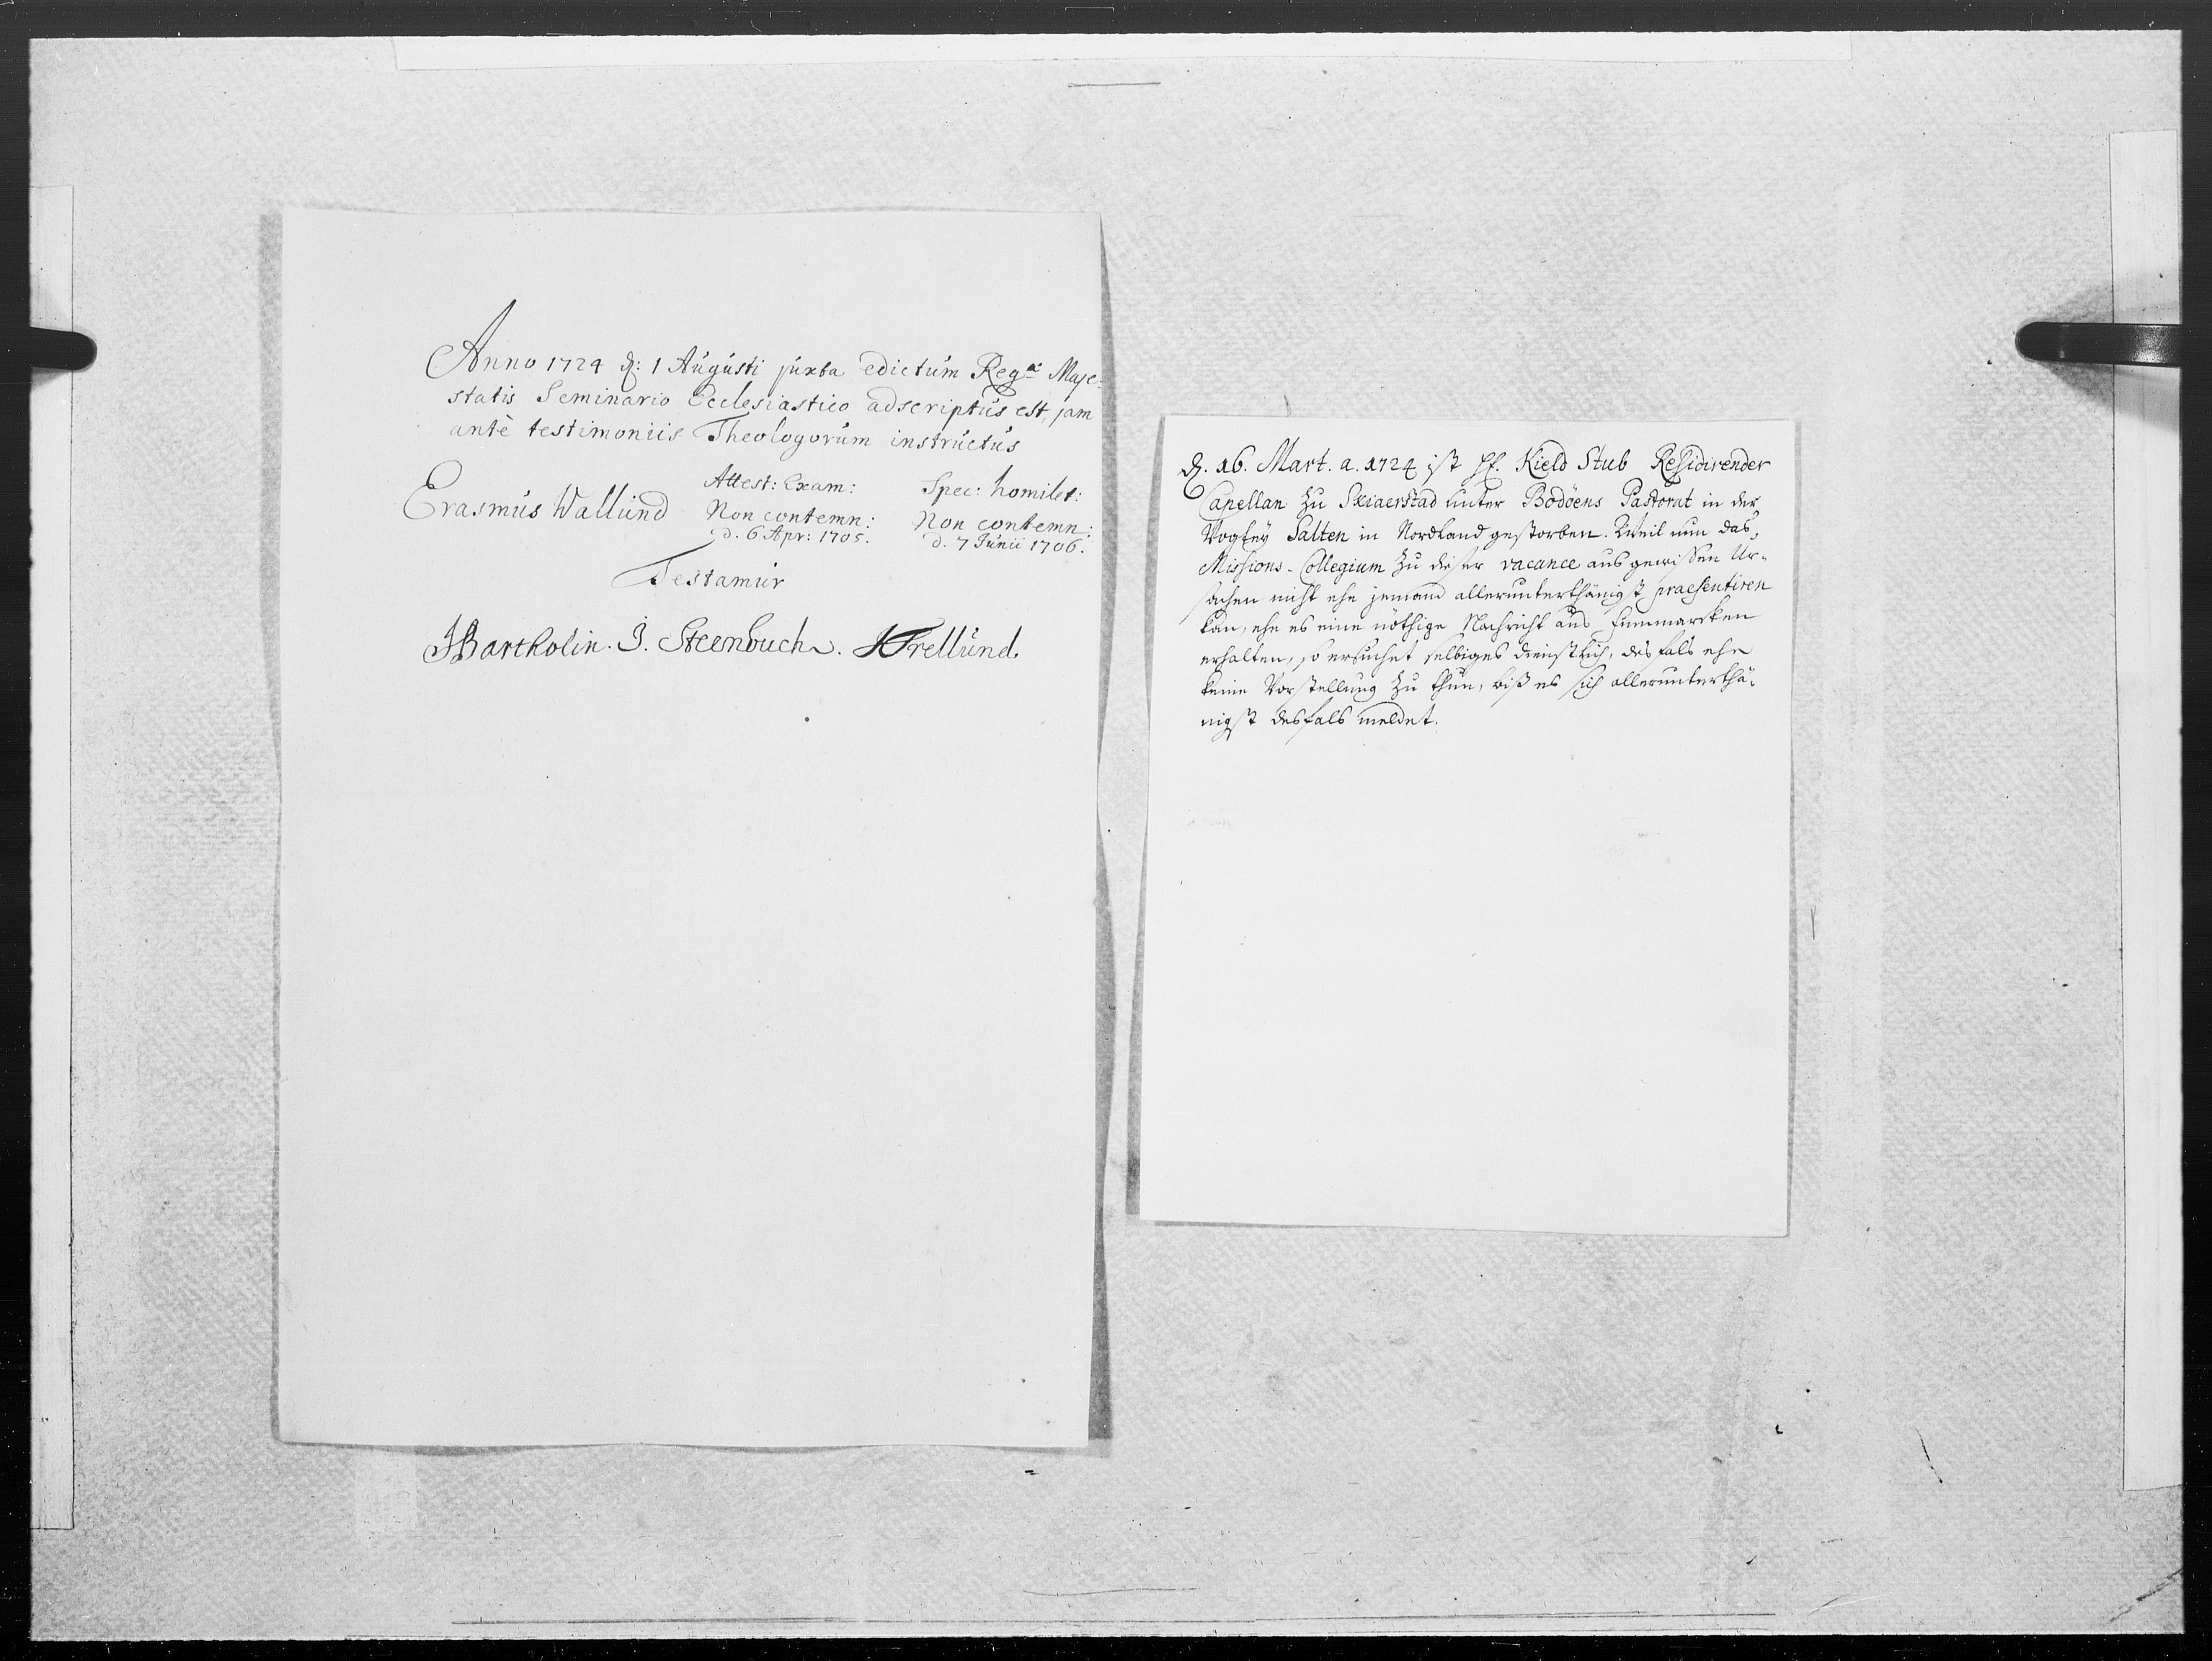 Anno 1724 d: 1 Augústi júxta edictúm Regæ Maje-
statis Seminario Ecclesiastico adscriptús est, jam
antè testimoniis Theologorúm instrúctús
Attest: Exam: Spec: homilet:
Erasmús Wallúnd Non contemn: Non contemn:
d. 6 Apr: 1705. d. 7 Júnii 1706.
Testamúr
HBartholin. J. Steenbuch. HTrellúnd.
d. 16. Mart. a. 1724 ist Hr. Kield Stub Residirender
Capellan zu Skiaerstad unter Bodöens Pastorat in der
Vogtey Salten in Nordland gestorben. Weil nun das
Missions-Collegium zu dieser vacance aus gewissen Ur-
sachen nicht ehe jemand allerunterthänigst praesentiren
kan, ehe es eine nöthige Nachricht aus Finnmarcken
erhalten, so ersuchet selbiges dienstlich, desfals ehe
keine Vorstellung zu thun, biß es sich allerunterthä-
nigst desfals meldet.